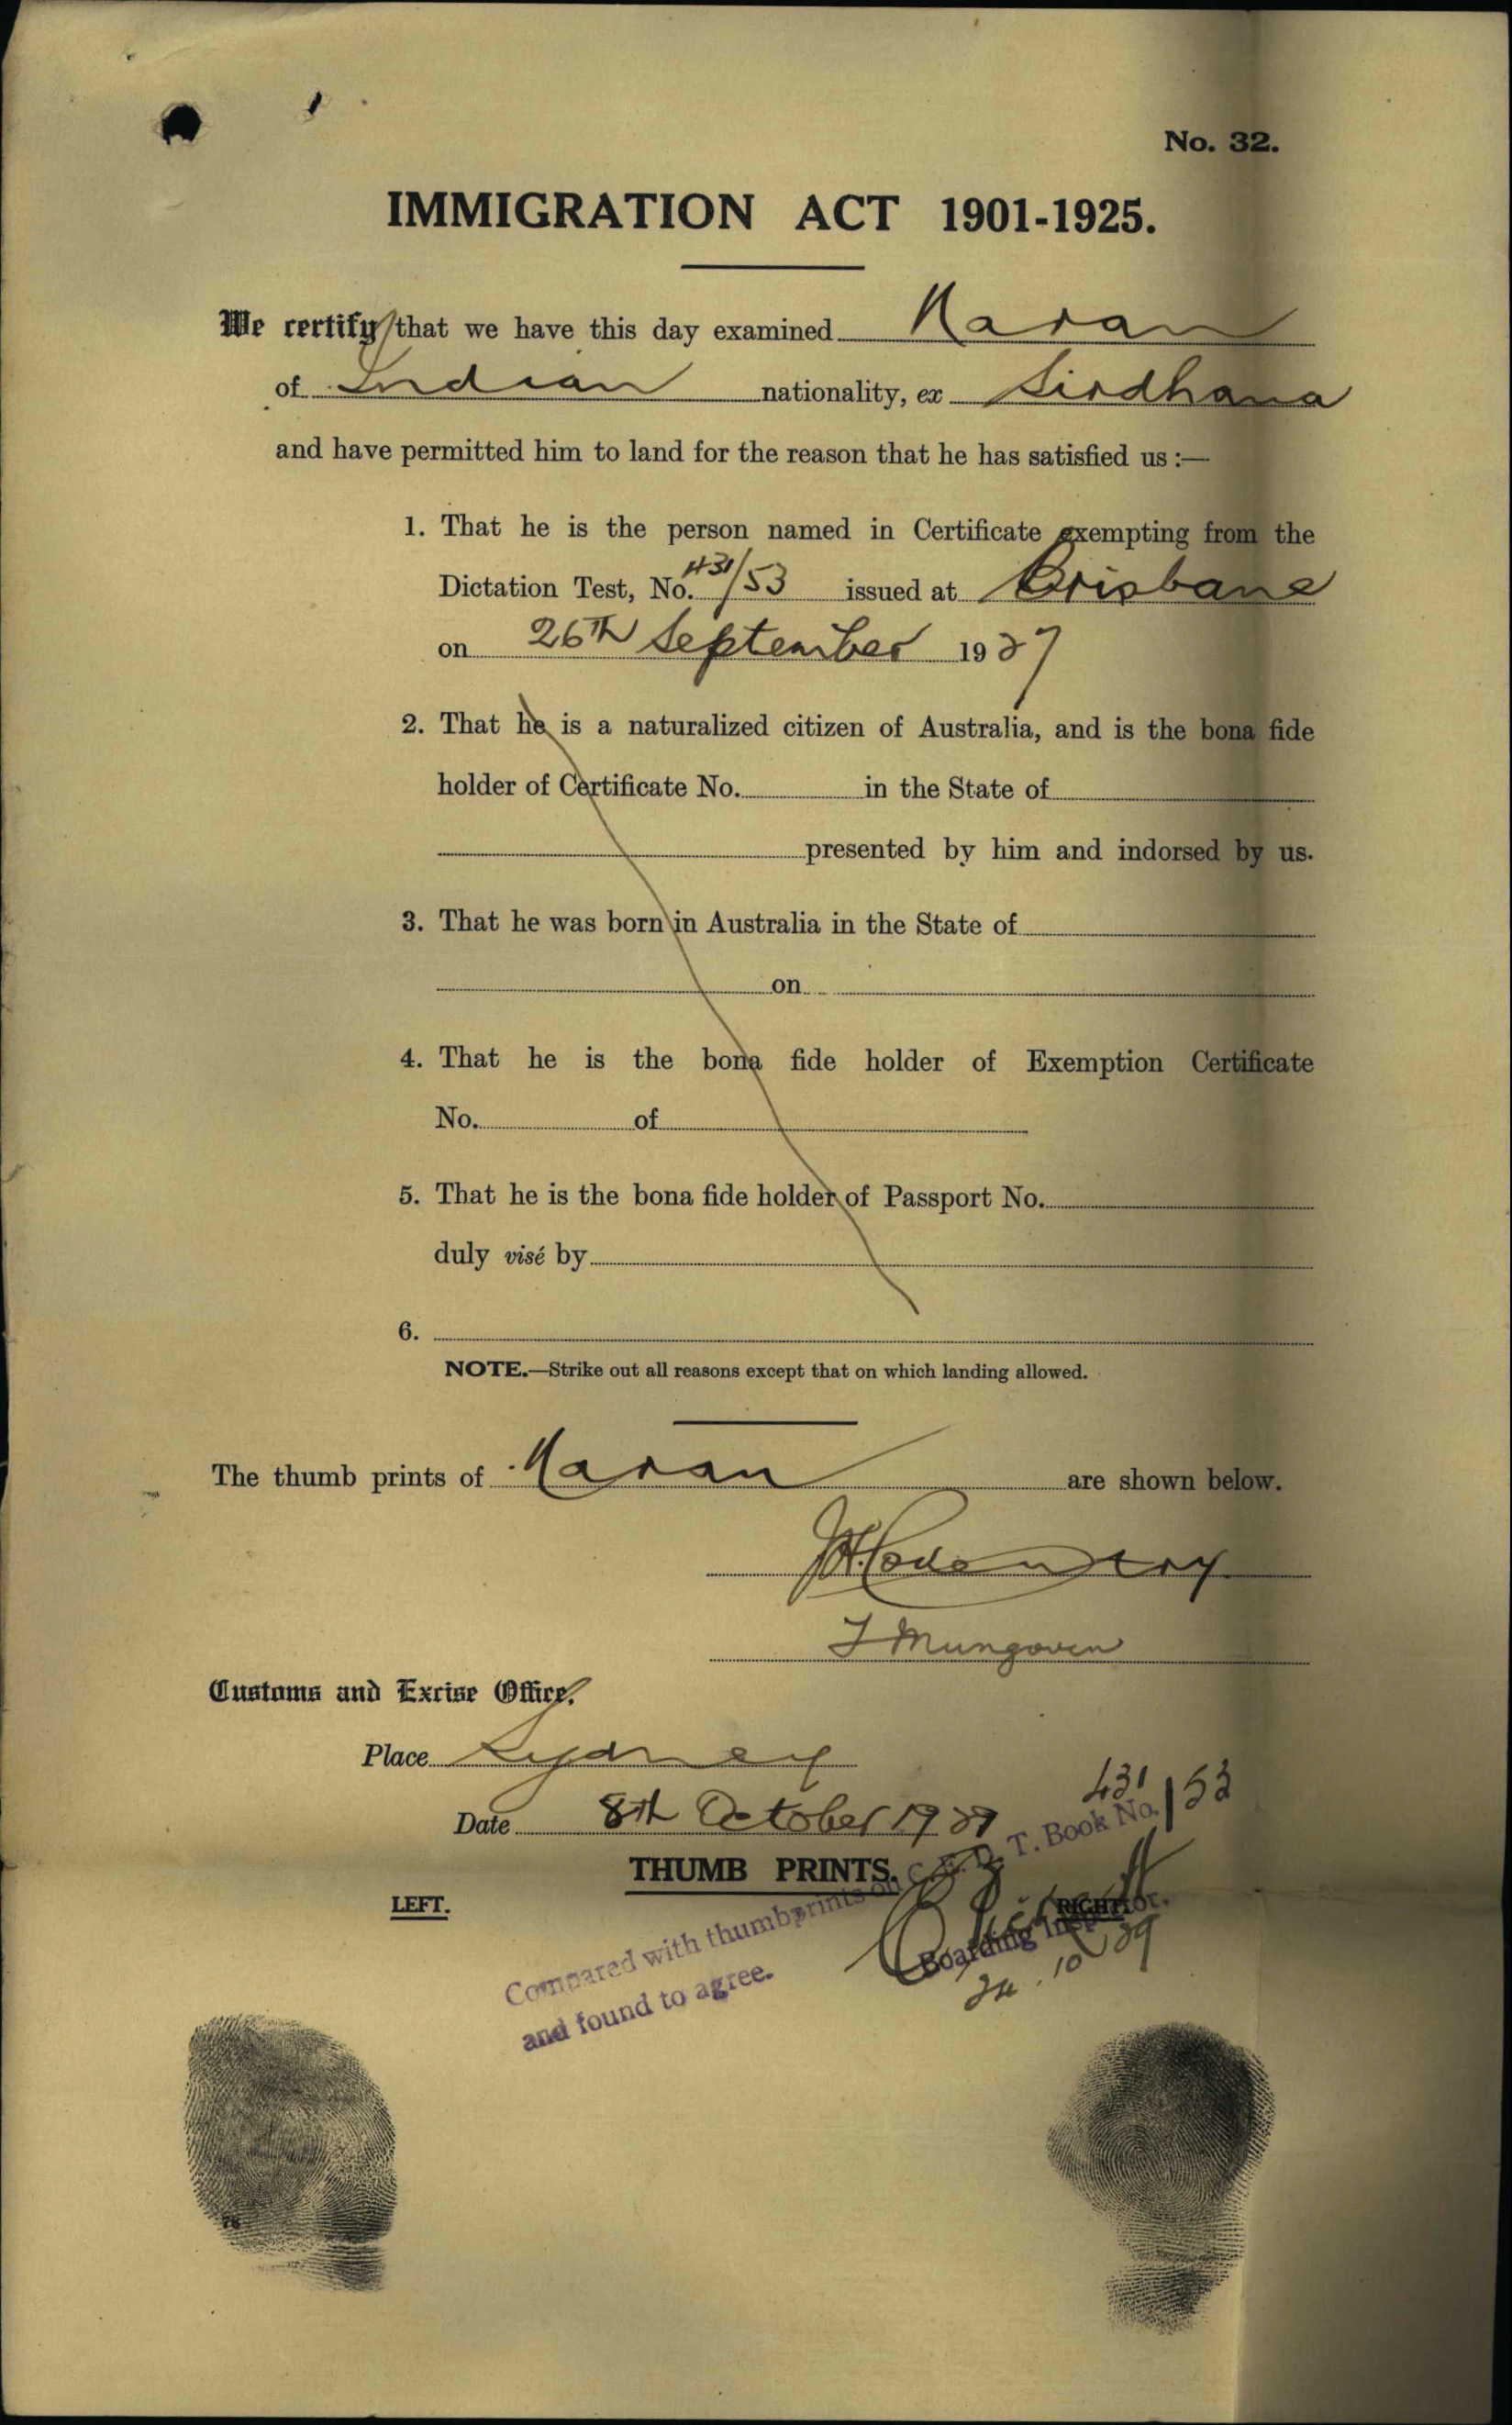 No. 32.
IMMIGRATION ACT 1901-1925.
We certify that we have this day examined Naran
of Indian nationality, ex Sirdhana
and have permitted him to land for the reason that he has satisfied us :—
1. That he is the person named in Certificate exempting from the
Dictation Test, No. 431/53 issued at Brisbane
on 26th September 1927
2. That he is a naturalized citizen of Australia, and is the bona fide
holder of Certificate No. in the State of
presented by him and indorsed by us.
3. That he was born in Australia in the State of
on
4. That he is the bona fide holder of Exemption Certificate
No. of
5. That he is the bona fide holder of Passport No.
duly visé by
6.
NOTE.—Strike out all reasons except that on which landing allowed.
The thumb prints of Naran are shown below.
Mungoven
Customs and Excise Office.
Place Sydney
Date 8th October 1929
431/53
THUMB PRINTS.
LEFT. RIGHT.
Compared with thumbprints on C.E.D.T. Book No.
and found to agree.
Boarding Inspector.